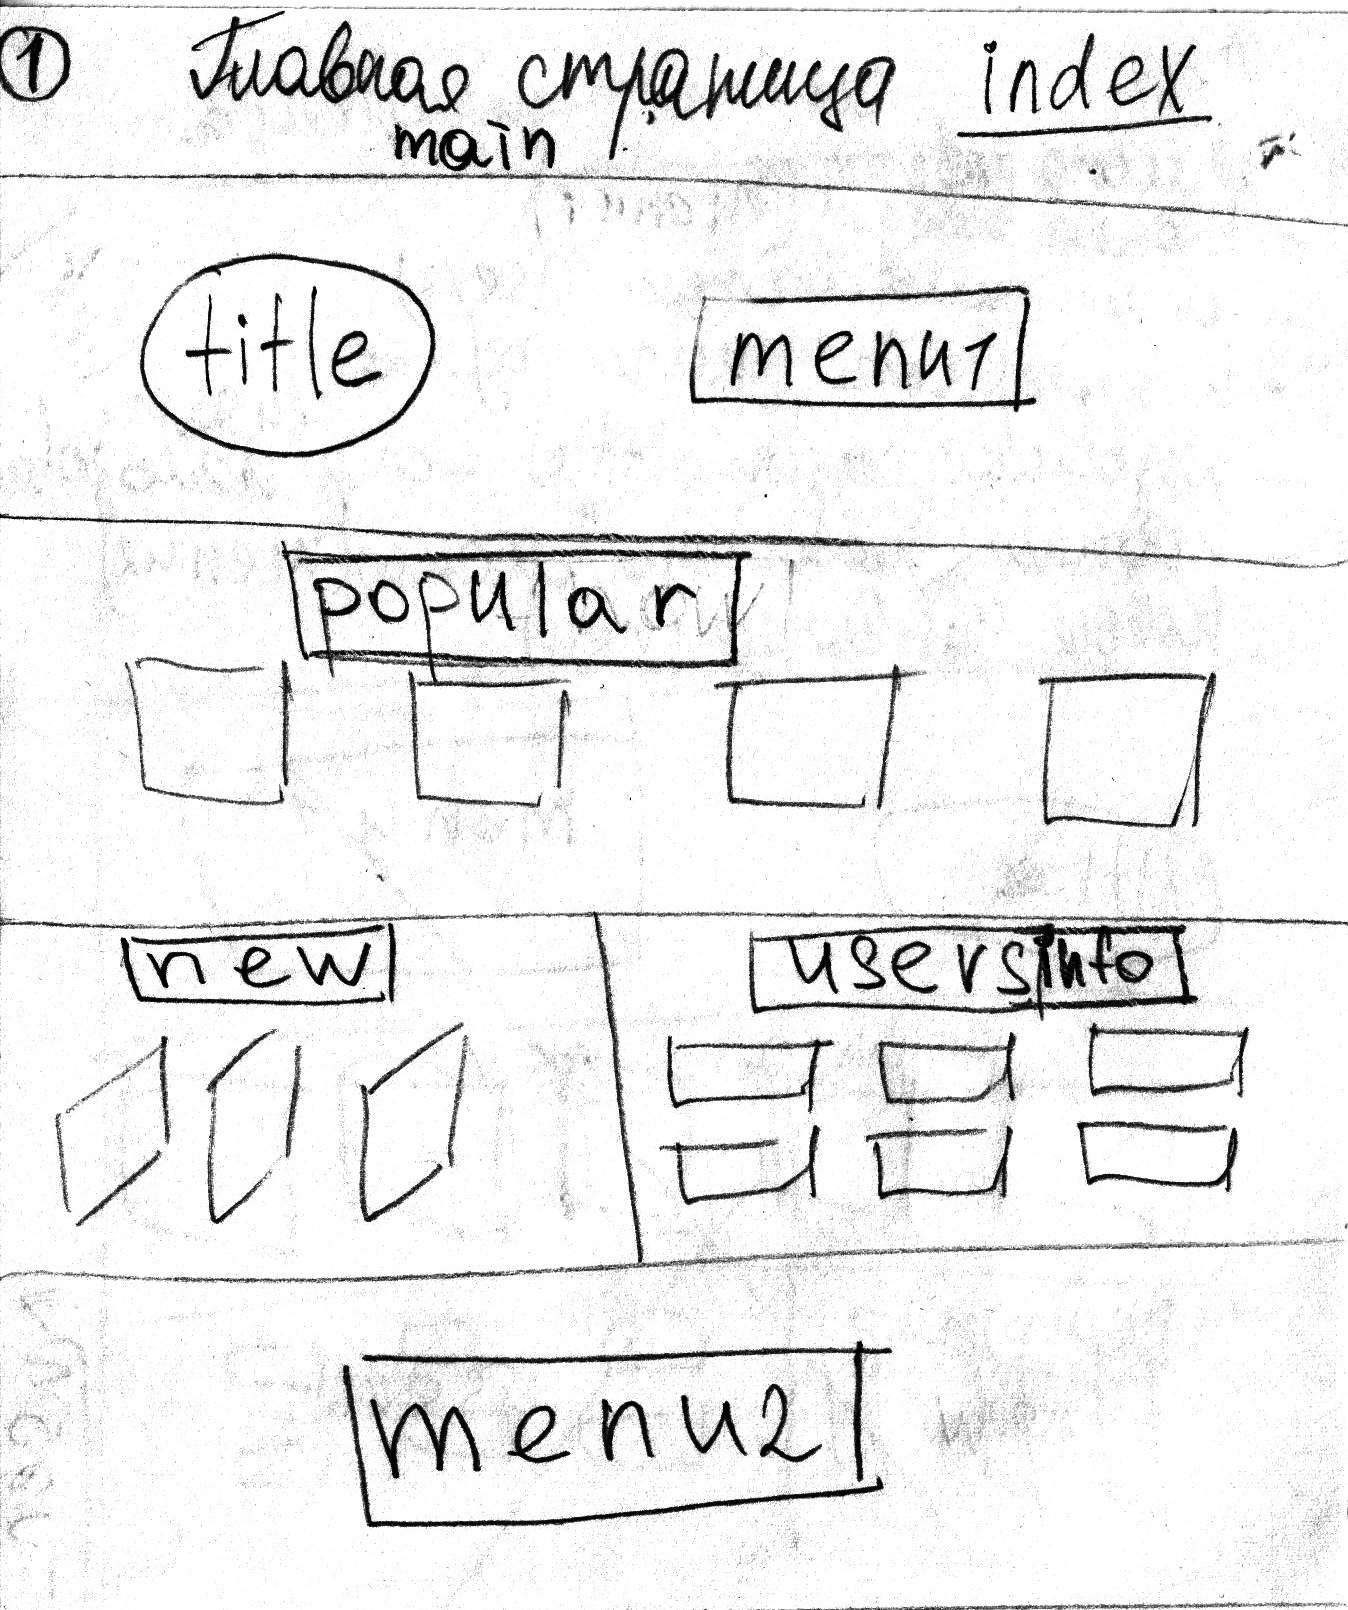 1 Главная страница index
main
title menu1
popular
new usersinfo
menu2